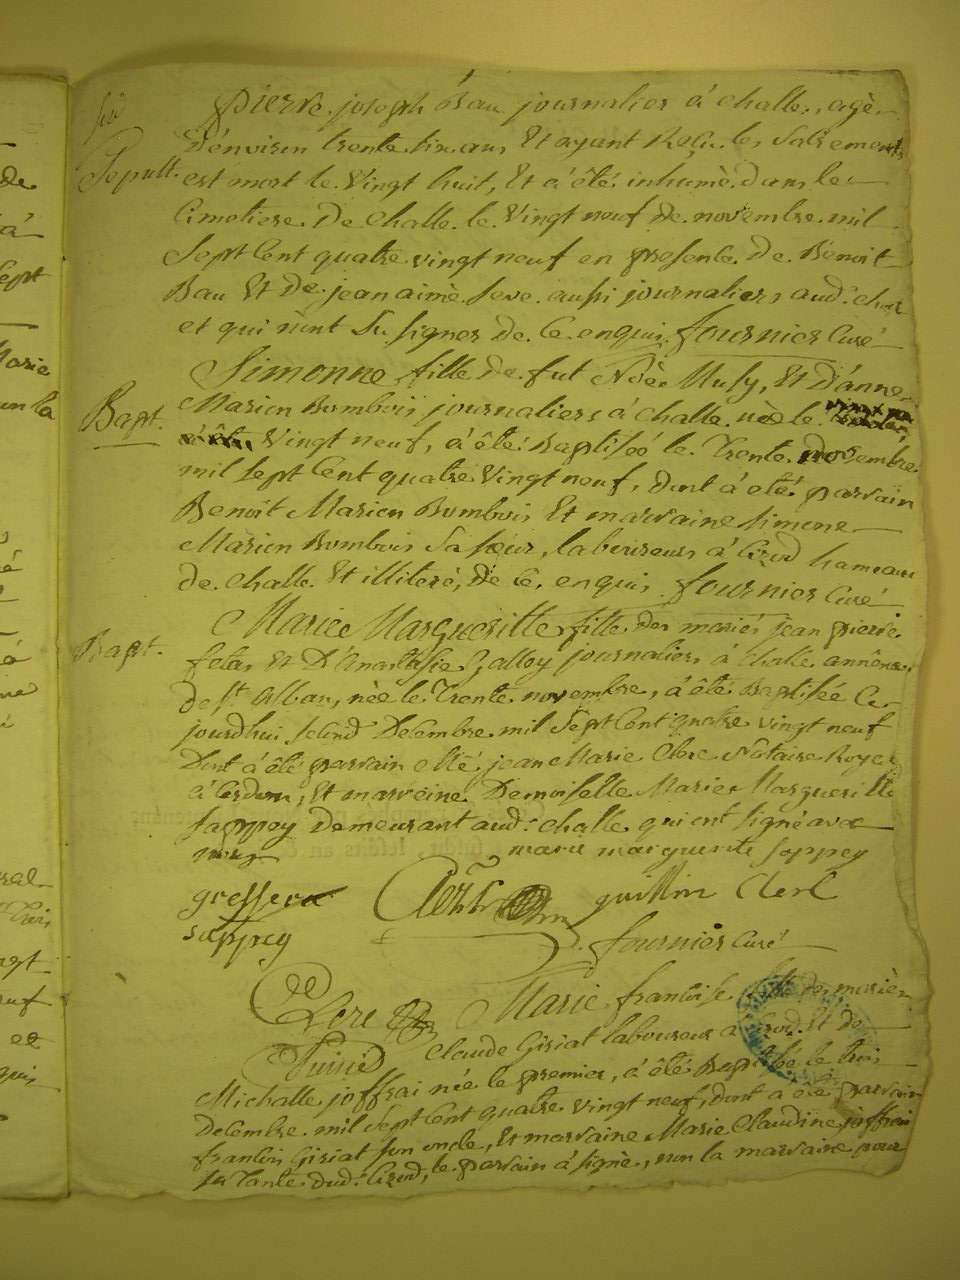 Pierre joseph Bau journalier á challe, agè
D'environ trente six ans, Et ayant Reçu les Sacrements
Sepult.
est mort le Vingt huit, Et a été inhumè dans le
Cimetiere De challe le Vingt neuf de novembre mil
Sept Cent quatre vingt neuf en presence De Benoit
Bau Et De jean aimè seve aussi journaliers aud.
et qui n'ont Su signer de Ce enquis fournier Curé
Simonne fille de fut Noèe Musy, Et D'anne
Bapt.
Marion Bombois journaliers á challe nèe le
Vingt neuf, á été Baptiseé le Trente novembre
mil sept Cent quatre Vingt neuf, dont á eté parvain
Benoit Marion Bombois Et marvaine simone
Marion Bombois Sa sœur, laboureurs á hameau
de challe Et illiteré, de Ce enquis fournier Curé
Bapt.
Marie Margueritte fille des mariés jean pierre
fetas Et D'Anastasie Zalloy journaliers á Challe annexe
de S.t Alban, nèe le Trente novembre, á été Baptisée Ce
jourd'hui second Decembre mil Sept Cent quatre vingt neuf
Dont á été parvain M.e jean Marie Clerc Notaire Royal
á Cerdon, Et marveine Demoiselle Marie Margueritte
sappey Demeurant aud. Challe qui ont signé avec
nous marie marguerite sappey
guillin Clerc
sappey
fournier Curé
Marie francoise fille des mariès
Claude Giriat laboureur a Et de
Michalle joffrai née le premier, á été Baptisé le trois
Decembre mil Sept Cent quatre Vingt neuf, dont a eté parvain
francois Giriat son oncle, Et marvaine Marie Claudine joffrai
sa Tante dud. le parvain á signè, non la marvaine pour